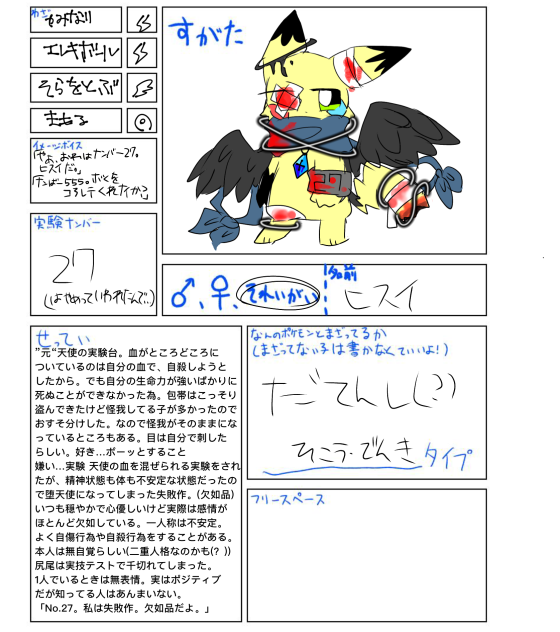 わざ
かみなり
エレキボール
そらをとぶ
まもる
イメージボイス
「やぁ、おれはナンバー27。
ヒスイだ。」
「ナンバー555。ボクを
コロしてくれないか?」
実験ナンバー
27
すがた
27
♂、♀、それいがい
名前
ヒスイ
せってい
”元“天使の実験台。血がところどころに
ついているのは自分の血で、自殺しようと
したから。でも自分の生命力が強いばかりに
死ぬことができなかった為。包帯はこっそり
盗んできたけど怪我してる子が多かったので
おすそ分けした。なので怪我がそのままにな
っているところもある。目は自分で刺した
らしい。好き…ボーッとすること
嫌い…実験 天使の血を混ぜられる実験をされ
たが、精神状態も体も不安定な状態だったの
で堕天使になってしまった失敗作。(欠如品)
いつも穏やかで心優しいけど実際は感情が
ほとんど欠如している。一人称は不安定。
よく自傷行為や自殺行為をすることがある。
本人は無自覚らしい(二重人格なのかも(? ))
尻尾は実技テストで千切れてしまった。
1人でいるときは無表情。実はポジティブ
だが知ってる人はあんまいない。
「No.27。私は失敗作。欠如品だよ。」
なんのポケモンとまざってるか
(まざってない子は書かなくていいよ!)
だてんし(?)
ひこう・でんき タイプ
フリースペース